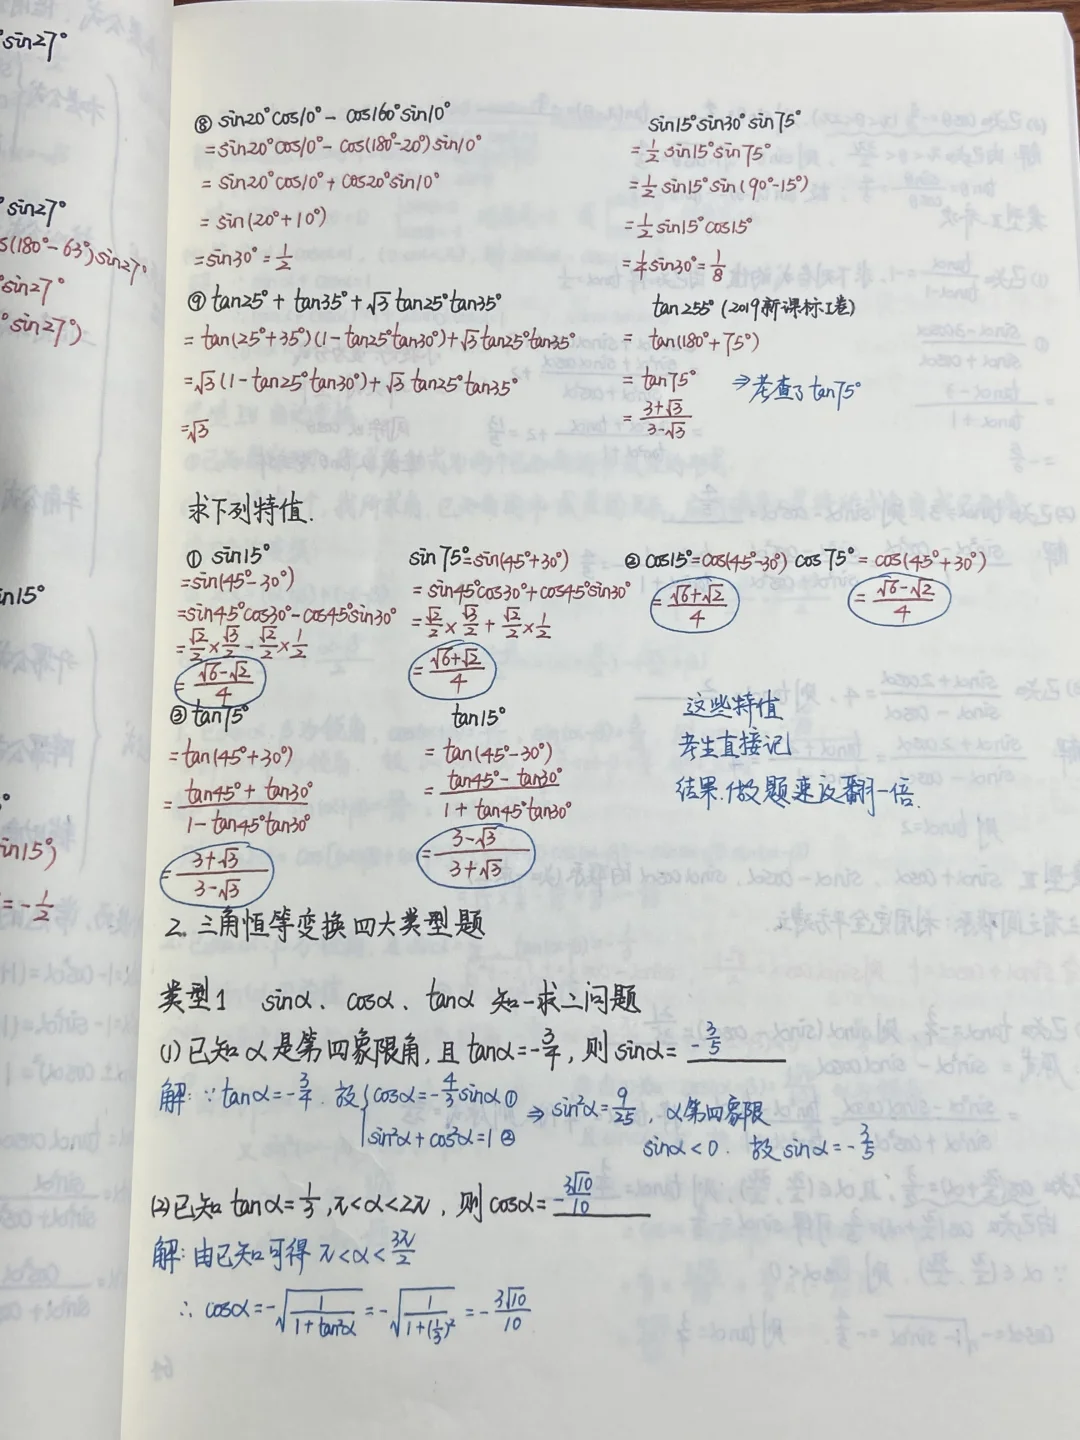 °sin27°
°sin27°
s(180°-63°)sin27°
°sin27°
°sin27°)
sin15°
sin15°)
=-1/2
⑧ sin20°cos10°-cos160°sin10°
=sin20°cos10°-cos(180°-20°)sin10°
=sin20°cos10°+cos20°sin10°
=sin(20°+10°)
=sin30°=1/2
sin15°sin30°sin75°
=1/2 sin15°sin75°
=1/2 sin15°sin(90°-15°)
=1/2 sin15°cos15°
=1/4 sin30°=1/8
⑨ tan25°+tan35°+√3 tan25°tan35°
=tan(25°+35°)(1-tan25°tan30°)+√3 tan25°tan35°
=√3(1-tan25°tan30°)+√3 tan25°tan35°
=√3
tan255°(2019新课标I卷)
=tan(180°+75°)
=tan75° ⇒考查了tan75°
=(3+√3)/(3-√3)
求下列特值.
① sin15°
=sin(45°-30°)
=sin45°cos30°-cos45°sin30°
=√2/2×√3/2-√2/2×1/2
=(√6-√2)/4
sin75°=sin(45°+30°)
=sin45°cos30°+cos45°sin30°
=√2/2×√3/2+√2/2×1/2
=(√6+√2)/4
② cos15°=cos(45°-30°)
=(√6+√2)/4
cos75°=cos(45°+30°)
=(√6-√2)/4
③ tan75°
=tan(45°+30°)
=(tan45°+tan30°)/(1-tan45°tan30°)
=(3+√3)/(3-√3)
tan15°
=tan(45°-30°)
=(tan45°-tan30°)/(1+tan45°tan30°)
=(3-√3)/(3+√3)
这些特值
考生直接记
结果.做题速度翻一倍.
2. 三角恒等变换四大类型题
类型1 sinα、cosα、tanα 知一求二问题
(1)已知α是第四象限角,且tanα=-3/4,则sinα=-3/5
解:∵tanα=-3/4.故{cosα=-4/3 sinα① ⇒sin²α=9/25,α第四象限
sin²α+cos²α=1② sinα<0.故sinα=-3/5
(2)已知tanα=1/3,π<α<2π,则cosα=-3√10/10
解:由已知可得π<α<3π/2
∴cosα=-√(1/(1+tan²α))=-√(1/(1+(1/3)²))=-3√10/10